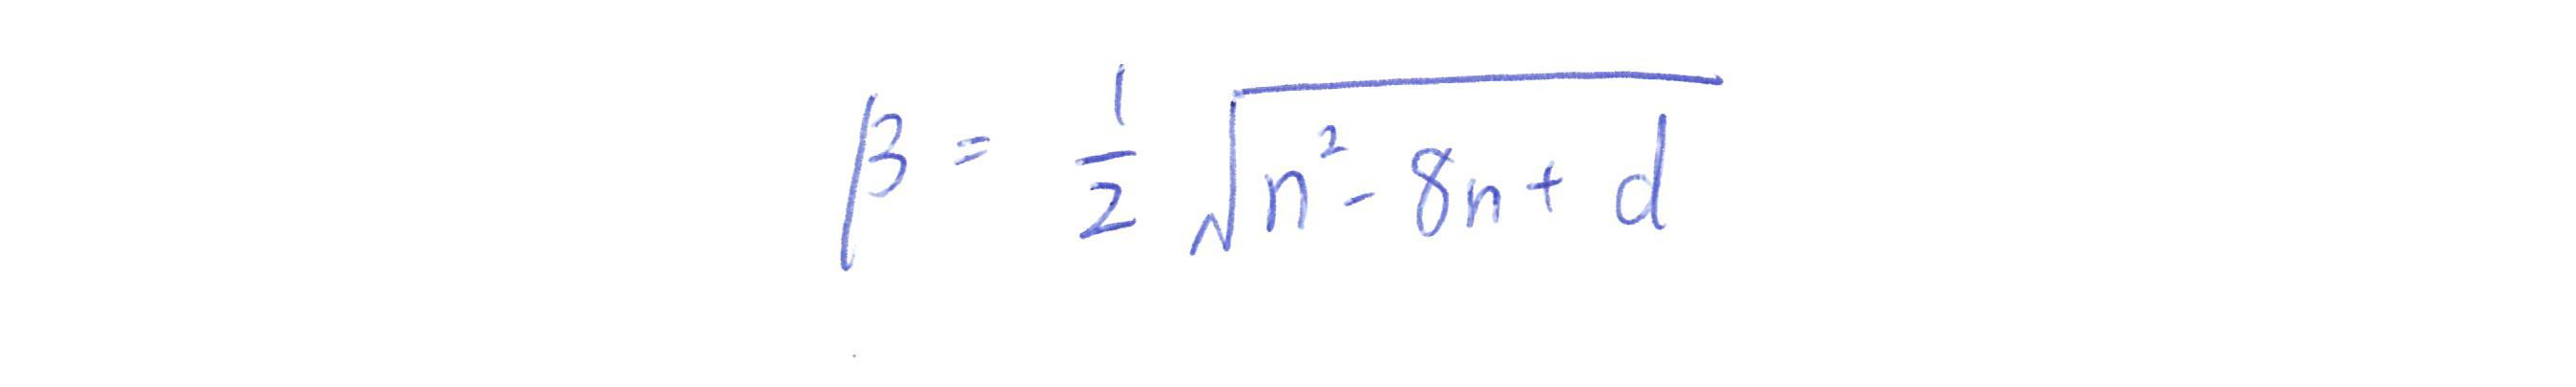 β = \frac{1}{2} \sqrt{n^2 - 8n + d}